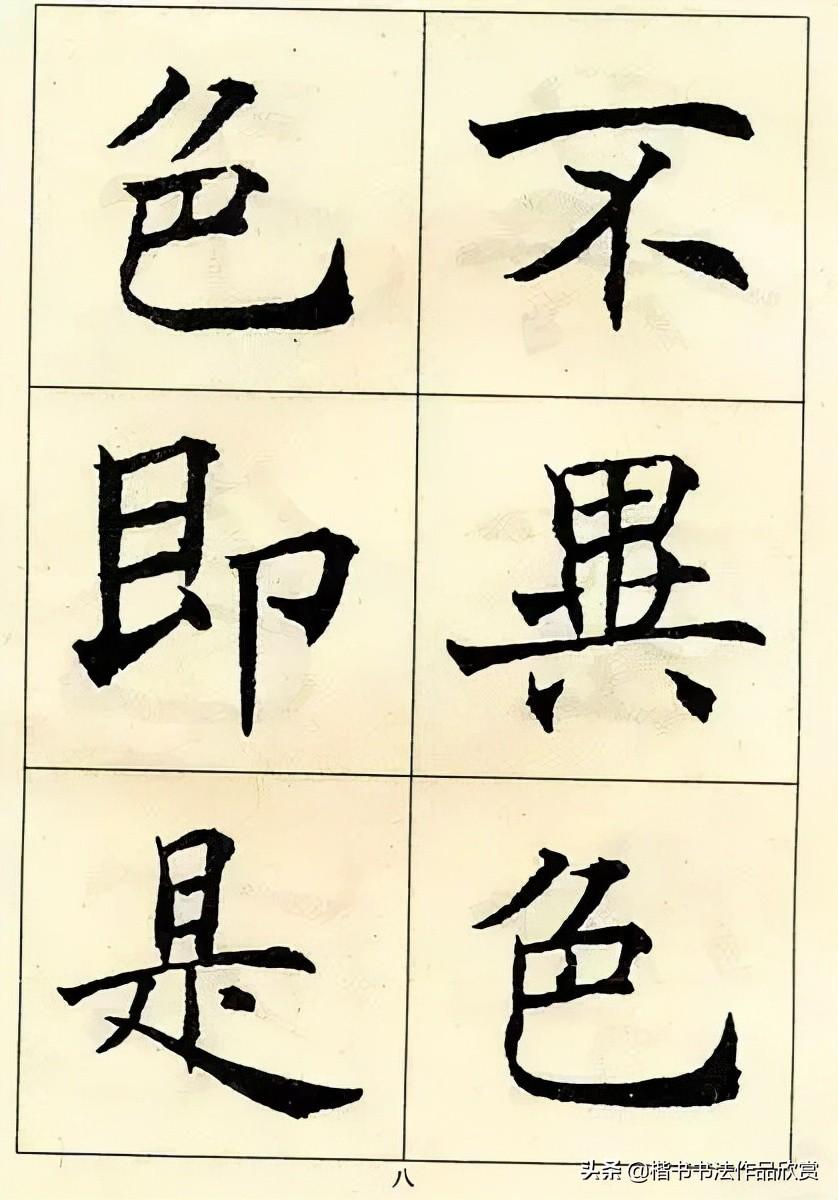 不異色
色即是
八
头条 @楷书书法作品欣赏